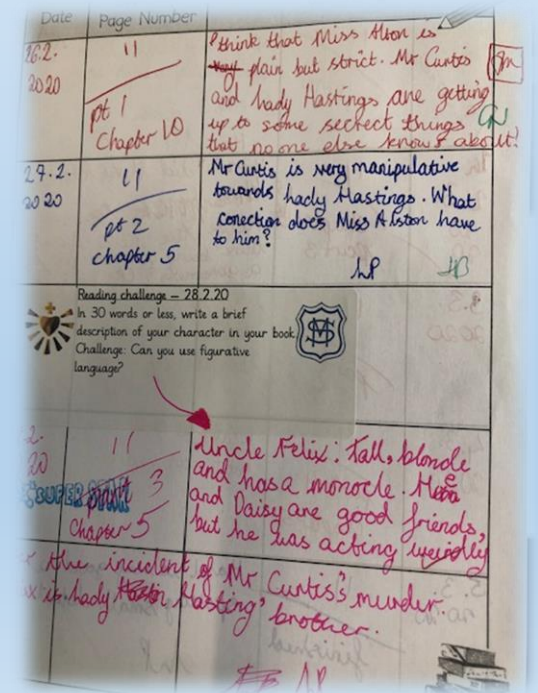 Date Page Number
26.2.
2020
11
pt 1
Chapter 10
I think that Miss Alston is
plain but strict. Mr Curtis
and Lady Hastings are getting
up to some secrect things
that no one else knows about!
27.2.
2020
11
pt 2
chapter 5
Mr Curtis is very manipulative
towards Lady Hastings. What
conection does Miss Alston have
to him?
LP
Reading challenge – 28.2.20
In 30 words or less, write a brief
description of your character in your book.
Challenge: Can you use figurative
language?
2.
20
11
SUPER STAR
3
Chapter 5
Uncle Felix: Tall, blonde
and has a monocle. He
and Daisy are good friends,
but he was acting weirdly
the incident of Mr Curtis's murder.
is Lady Hasting' brother.
LP